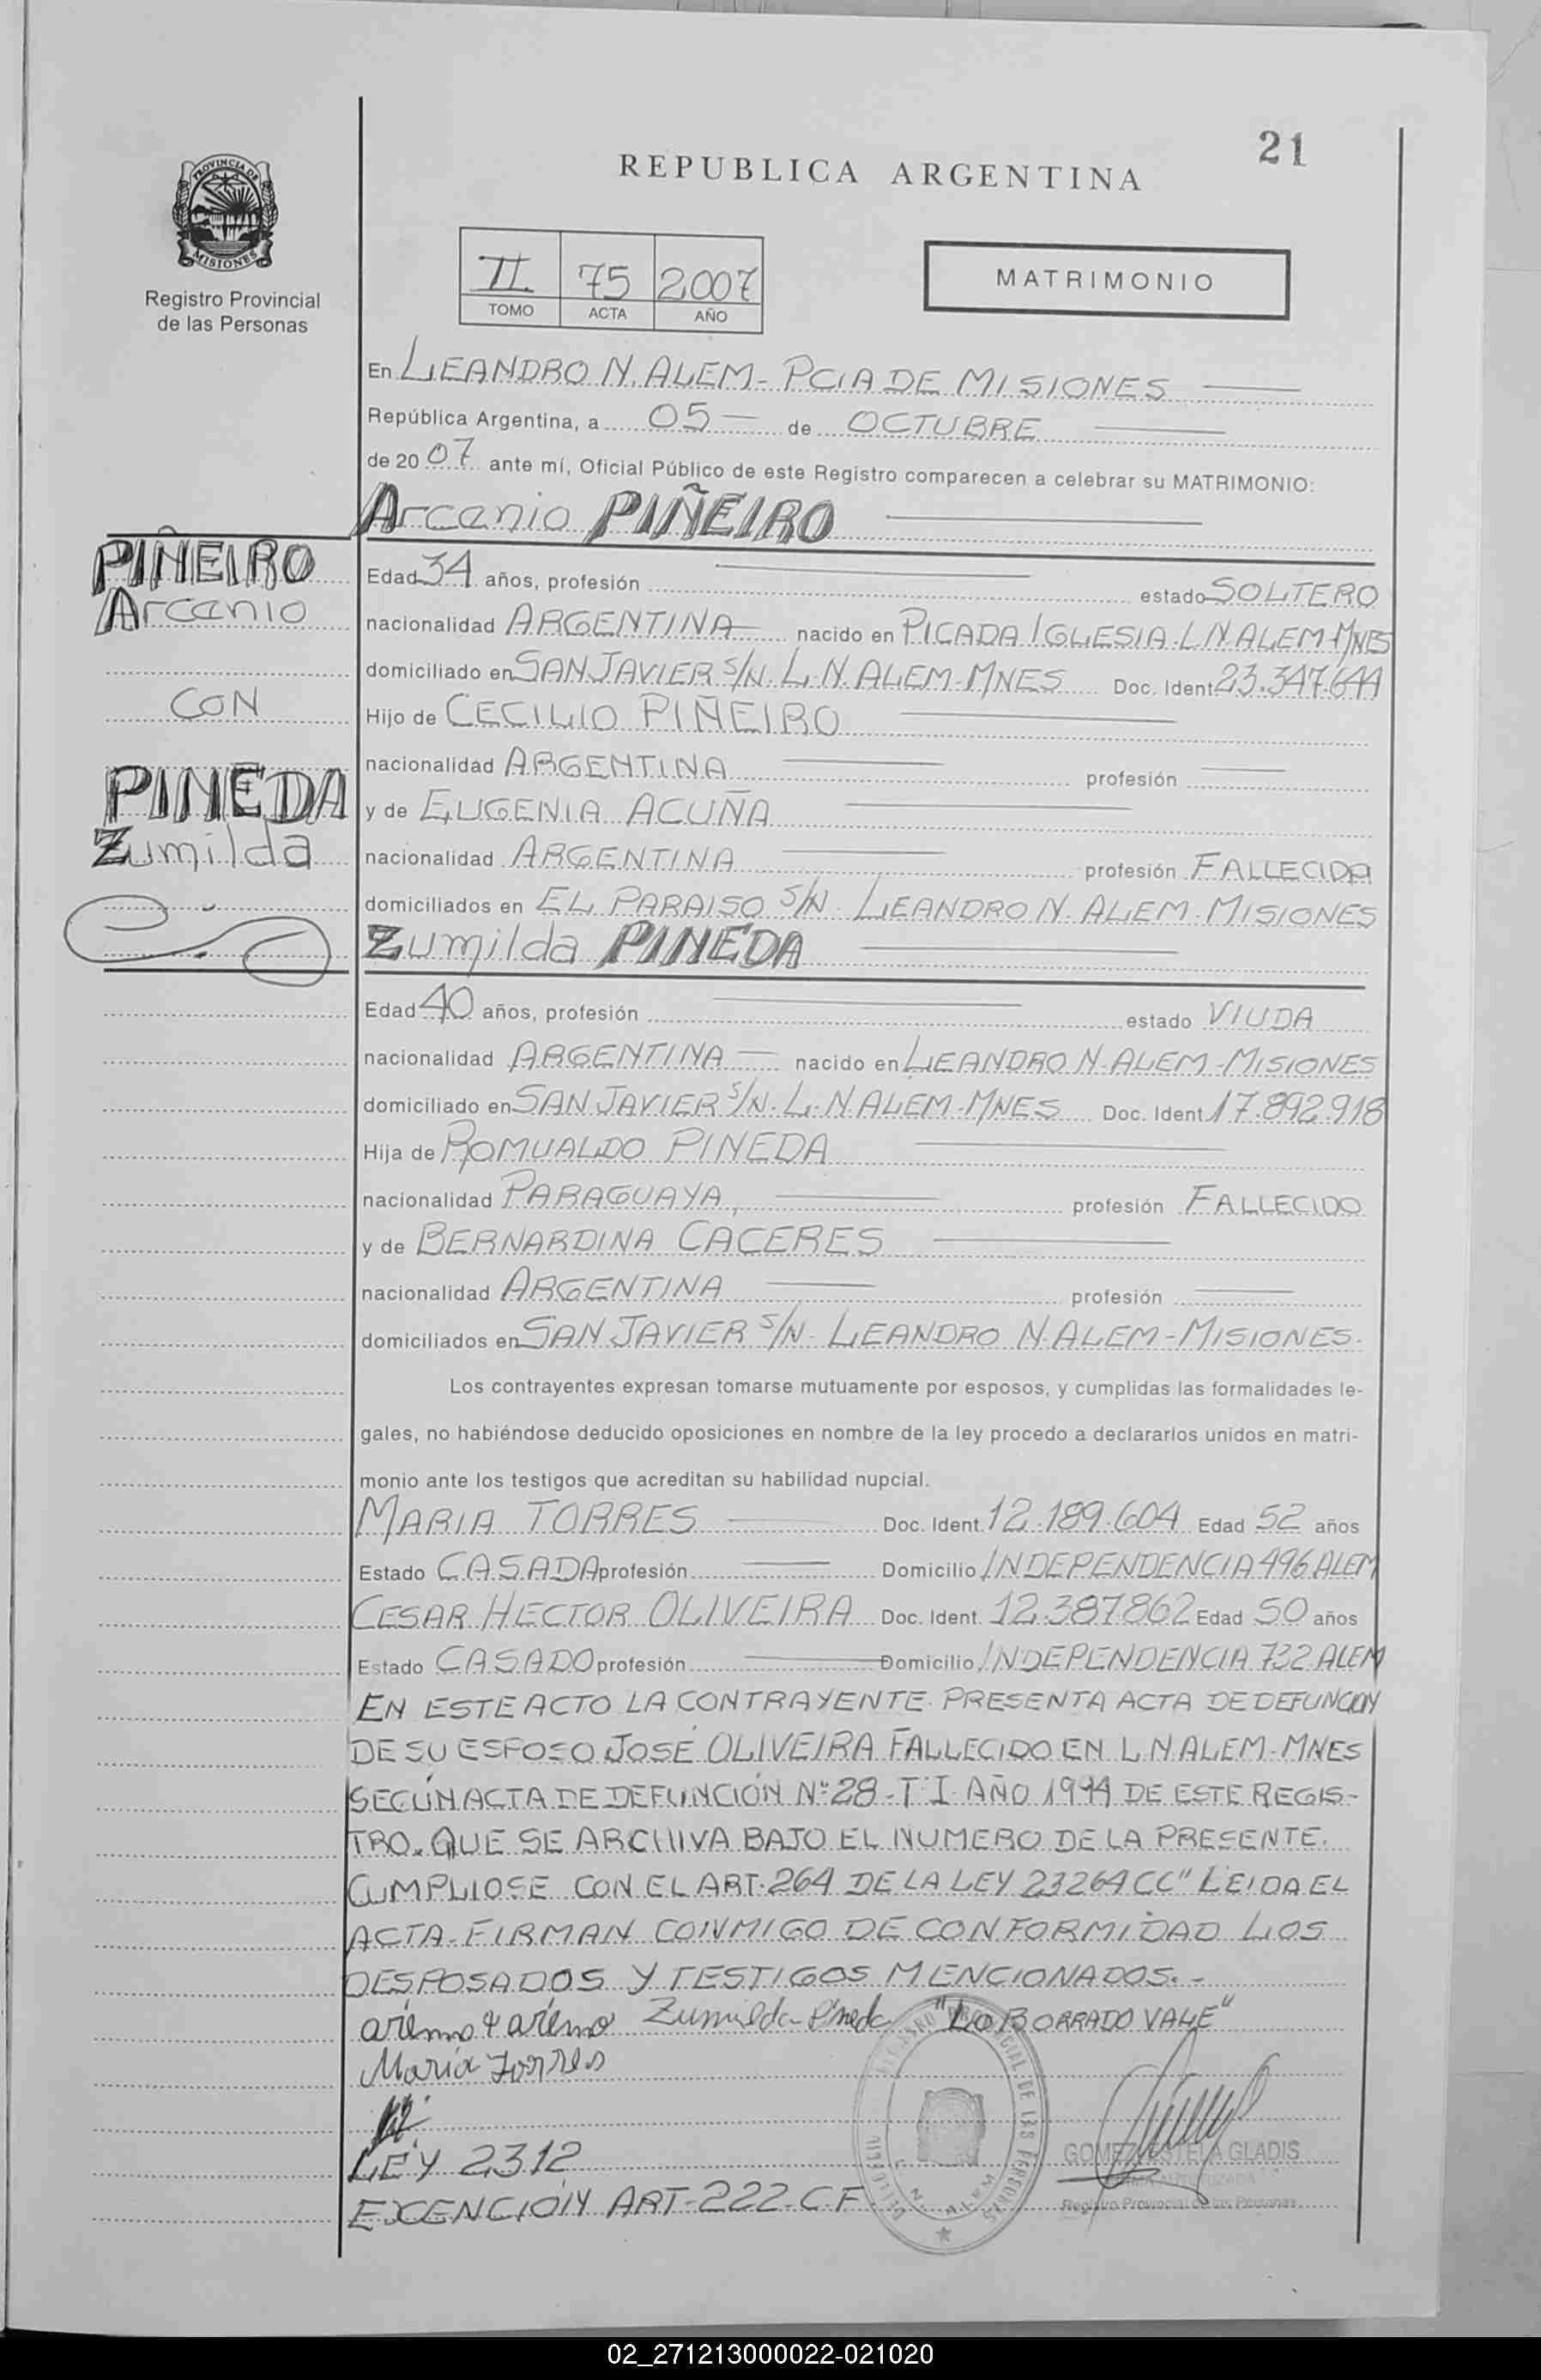 21
REPUBLICA ARGENTINA
PROVINCIA DE MISIONES
Registro Provincial
de las Personas
II 75 2007
TOMO ACTA AÑO
MATRIMONIO
En LEANDRO N. ALEM - PCIA DE MISIONES
República Argentina, a 05 de OCTUBRE
de 20 07 ante mí, Oficial Público de este Registro comparecen a celebrar su MATRIMONIO:
Arcenio PIÑEIRO
PIÑEIRO
Arcenio
CON
PINEDA
Zumilda
Edad 34 años, profesión estado SOLTERO
nacionalidad ARGENTINA nacido en PICADA IGLESIA. L N. ALEM-MNES
domiciliado en SAN JAVIER S/N. L. N. ALEM-MNES Doc. Ident 23.347.644
Hijo de CECILIO PIÑEIRO
nacionalidad ARGENTINA profesión
y de EUGENIA ACUÑA
nacionalidad ARGENTINA profesión FALLECIDA
domiciliados en EL PARAISO S/N LEANDRO N. ALEM. MISIONES
Zumilda PINEDA
Edad 40 años, profesión estado VIUDA
nacionalidad ARGENTINA nacido en LEANDRO N. ALEM-MISIONES
domiciliado en SAN JAVIER S/N. L. N ALEM-MNES Doc. Ident 17.892.918
Hija de ROMUALDO PINEDA
nacionalidad PARAGUAYA profesión FALLECIDO
y de BERNARDINA CACERES
nacionalidad ARGENTINA profesión
domiciliados en SAN JAVIER S/N. LEANDRO N. ALEM-MISIONES.
Los contrayentes expresan tomarse mutuamente por esposos, y cumplidas las formalidades le-
gales, no habiéndose deducido oposiciones en nombre de la ley procedo a declararlos unidos en matri-
monio ante los testigos que acreditan su habilidad nupcial.
MARIA TORRES Doc. Ident. 12.189.604 Edad 52 años
Estado CASADA profesión Domicilio INDEPENDENCIA 496 ALEM
CESAR HECTOR OLIVEIRA Doc. Ident. 12.387862 Edad 50 años
Estado CASADO profesión Domicilio INDEPENDENCIA 732 ALEM
EN ESTE ACTO LA CONTRAYENTE PRESENTA ACTA DE DEFUNCION
DE SU ESPOSO JOSÉ OLIVEIRA FALLECIDO EN L N ALEM-MNES
SEGÚN ACTA DE DEFUNCIÓN Nº 28 - T I AÑO 1994 DE ESTE REGIS-
TRO. QUE SE ARCHIVA BAJO EL NUMERO DE LA PRESENTE.
CUMPLIOSE CON EL ART. 264 DE LA LEY 23264 CC" LEIDA EL
ACTA - FIRMAN CONMIGO DE CONFORMIDAD LOS
DESPOSADOS Y TESTIGOS MENCIONADOS. -
Zumilda Pineda "LO BORRADO VALE"
Maria Torres
LEY 2312
EXENCIÓN ART-222-C F.
GOMEZ ESTELA GLADIS
FIRMA AUTORIZADA
Registro Provincial de las Personas
02_271213000022-021020